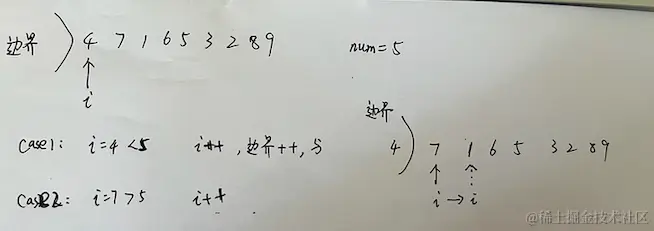 边界 ) 4 7 1 6 5 3 2 8 9 num=5
i
边界
case1: i=4<5 i++,边界++,与
4 ) 7 1 6 5 3 2 8 9
case2: i=7>5 i++
i→i
@稀土掘金技术社区